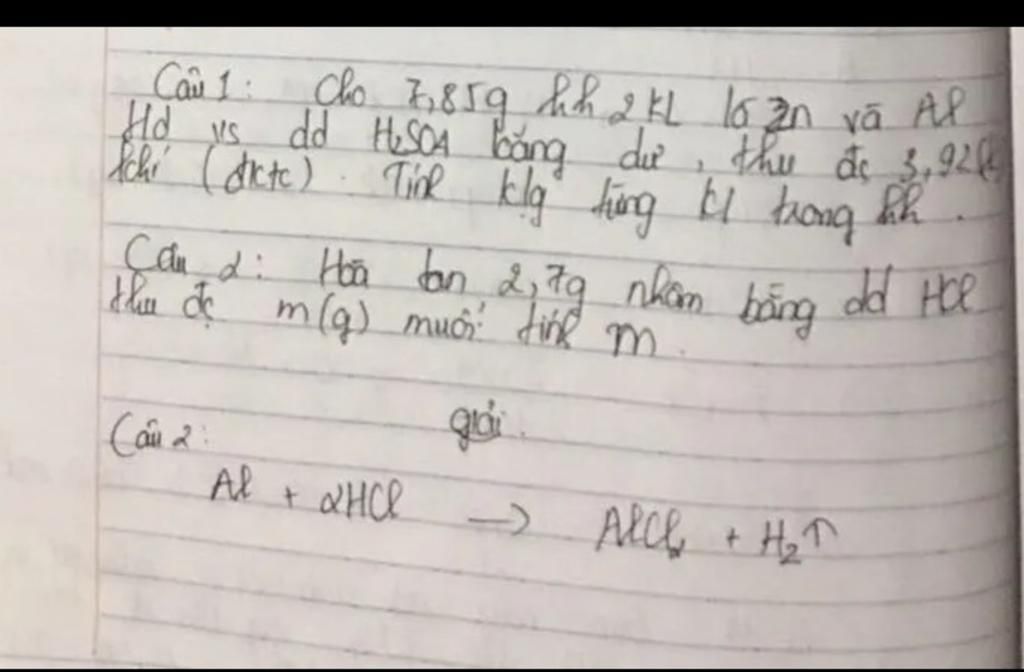 Câu 1: Cho 7,85g hh 2 KL là Zn và Al
td vs dd H2SO4 loãng dư, thu đc 3,92(l)
khí (đktc). Tính klg từng kl trong hh.
Câu 2: Hòa tan 2,7g nhôm bằng dd HCl
thu đc m(g) muối tính m.
giải.
Câu 2:
Al + 2HCl → AlCl2 + H2↑